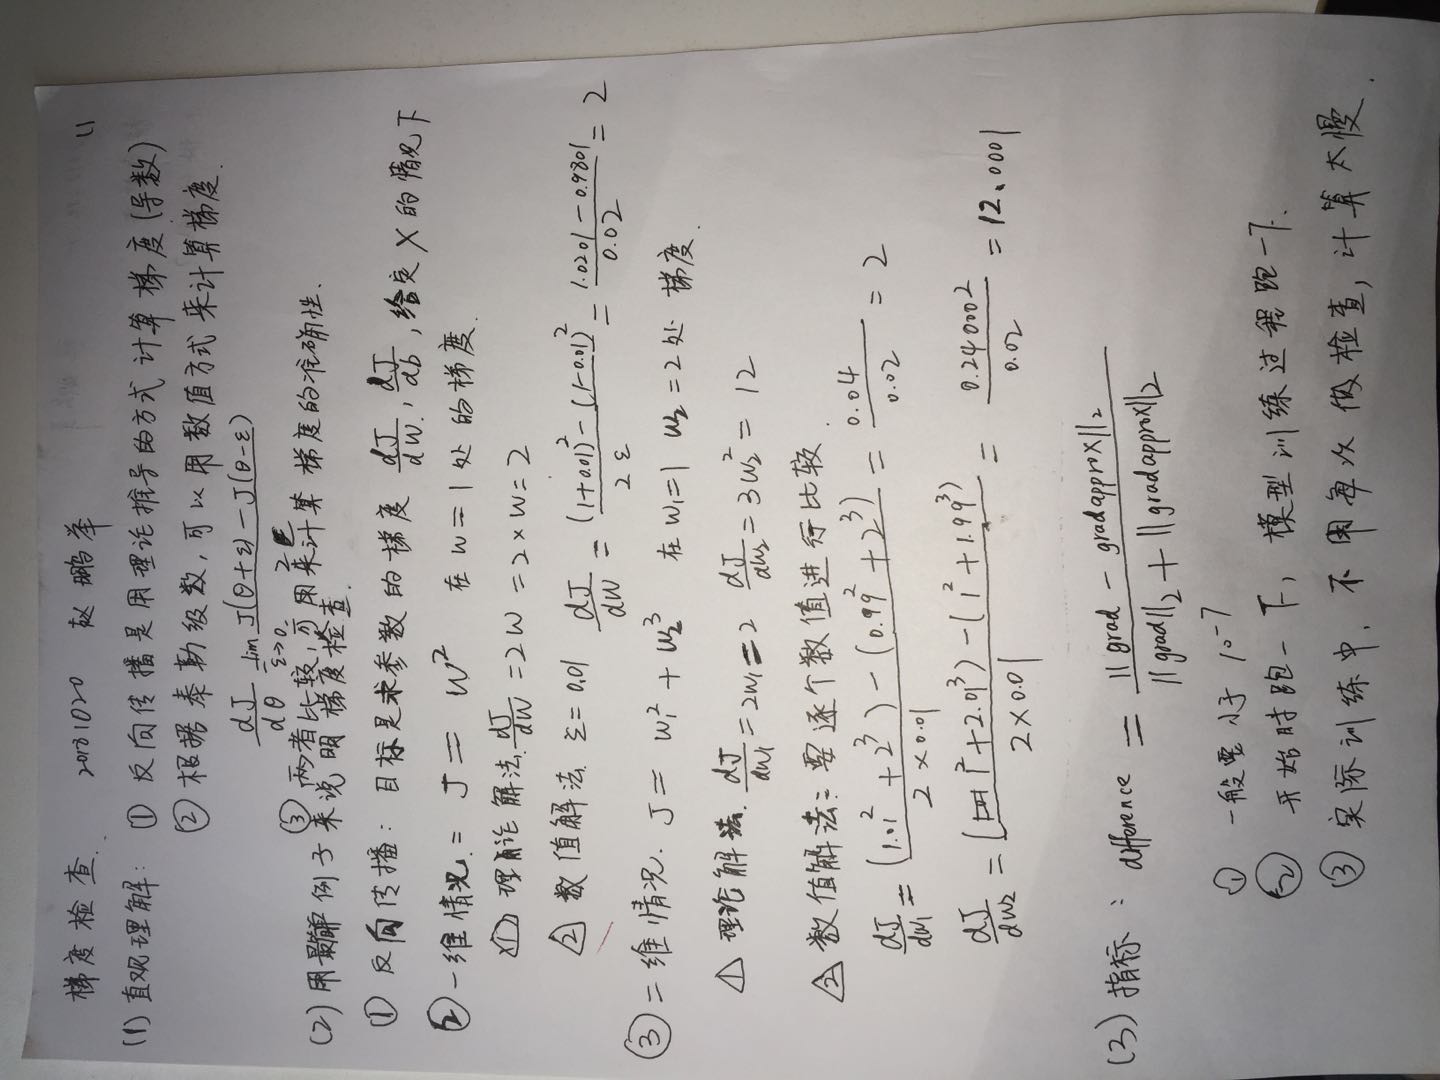 梯度检查. 20181020 赵鹏举 U
(1) 直观理解: ① 反向传播是用理论推导的方式计算梯度(导数)
② 根据泰勒级数, 可以用数值方式来计算梯度.
dJ/dθ = lim ε→0 (J(θ+ε) - J(θ-ε)) / 2ε
③ 两者比较, 可用来计算梯度的准确性.
(2) 用最解例子来说明梯度检查.
① 反向传播: 目标是求参数的梯度 dJ/dW, dJ/db, 给定 X 的情况下
② 一维情况: J = W² 在 w=1 处的梯度.
△1 理论解法. dJ/dW = 2W = 2×W = 2
△2 数值解法. ε=0.01 dJ/dW = ((1+0.01)² - (1-0.01)²) / 2ε = (1.0201 - 0.9801) / 0.02 = 2
③ 二维情况. J = w₁² + w₂³ 在 w₁=1 w₂=2 处 梯度.
△1 理论解法. dJ/dw₁ = 2w₁ = 2 dJ/dw₂ = 3w₂² = 12
△2 数值解法: 要逐个数值进行比较.
dJ/dw₁ = ((1.01² + 2³) - (0.99² + 2³)) / (2×0.01) = 0.04 / 0.02 = 2
dJ/dw₂ = ((1² + 2.01³) - (1² + 1.99³)) / (2×0.01) = 0.240002 / 0.02 = 12.0001
(3) 指标: difference = ||grad - gradapprox||₂ / (||grad||₂ + ||gradapprox||₂)
① 一般要小于 10⁻⁷
② 开始时跑一下, 模型训练过程跑一下.
③ 实际训练中, 不用每次做检查, 计算太慢.